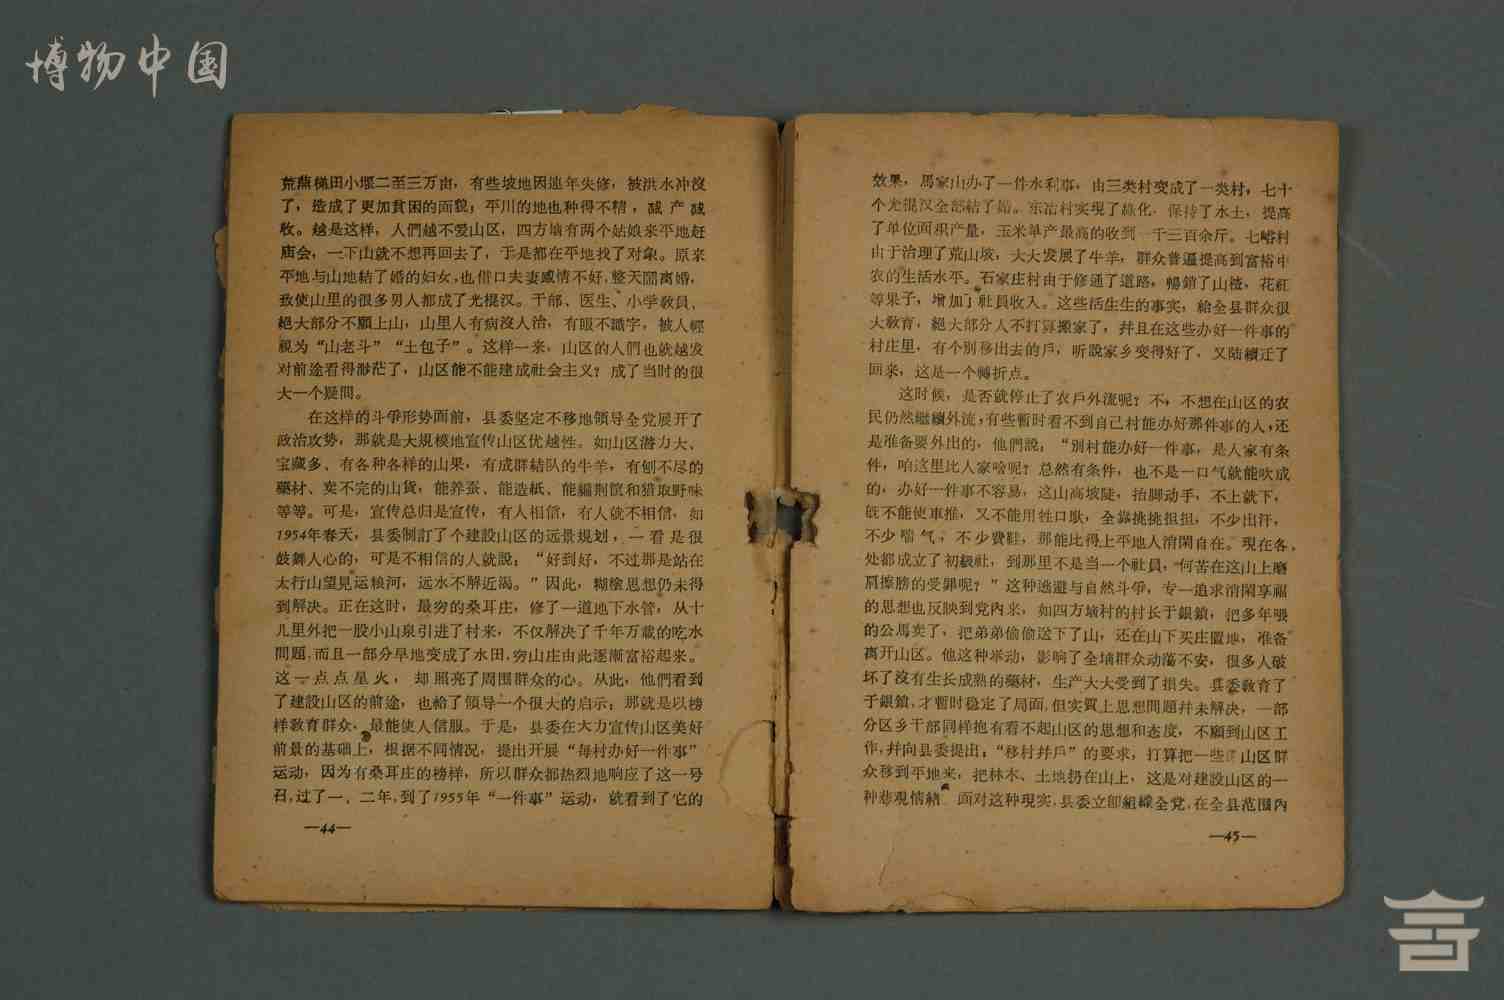 博物中国
荒蕪梯田小堰二至三万亩，有些坡地因連年失修，被洪水冲沒
了，造成了更加貧困的面貌；平川的地也种得不精，减产减
收。越是这样，人們越不爱山区，四方墒有两个姑娘来平地赶
庙会，一下山就不想再回去了，于是都在平地找了对象。原来
平地与山地結了婚的妇女，也借口夫妻感情不好，整天鬧离婚，
致使山里的很多男人都成了光棍汉。干部、医生、小学敎員、
絕大部分不願上山，山里人有病沒人治，有眼不識字，被人輕
視为“山老斗”“土包子”。这样一来，山区的人們也就越发
对前途看得渺茫了，山区能不能建成社会主义？成了当时的很
大一个疑問。
在这样的斗爭形势面前，县委坚定不移地領导全党展开了
政治攻势，那就是大規模地宣传山区优越性。如山区潜力大、
宝藏多、有各种各样的山果，有成群結队的牛羊，有刨不尽的
藥材、卖不完的山貨，能养蚕、能造紙、能編荆筐和猎取野味
等等。可是，宣传总归是宣传，有人相信，有人就不相信，如
1954年春天，县委制訂了个建設山区的远景規划，一看是很
鼓舞人心的，可是不相信的人就說：“好到好，不过那是站在
太行山望見运粮河，远水不解近渴。”因此，糊塗思想仍未得
到解决。正在这时，最穷的桑耳庄，修了一道地下水管，从十
几里外把一股小山泉引进了村来，不仅解决了千年万載的吃水
問題，而且一部分旱地变成了水田，穷山庄由此逐漸富裕起来。
这一点点星火，却照亮了周围群众的心。从此，他們看到
了建設山区的前途，也給了領导一个很大的启示：那就是以榜
样敎育群众，最能使人信服。于是，县委在大力宣传山区美好
前景的基础上，根据不同情况，提出开展“每村办好一件事”
运动，因为有桑耳庄的榜样，所以群众都热烈地响应了这一号
召，过了一、二年，到了1955年“一件事”运动，就看到了它的
—44—
效果，馬家山办了一件水利事，由三类村变成了一类村，七十
个光混汉全部結了婚。东沿村实現了綠化，保持了水土，提高
了单位面积产量，玉米单产最高的收到一千三百余斤。七峪村
由于治理了荒山坡，大大发展了牛羊，群众普遍提高到富裕中
农的生活水平。石家庄村由于修通了道路，暢銷了山楂，花紅
等果子，增加了社員收入。这些活生生的事实，給全县群众很
大敎育，絕大部分人不打算搬家了，幷且在这些办好一件事的
村庄里，有个別移出去的戶，听說家乡变得好了，又陆續迁了
回来，这是一个轉折点。
这时候，是否就停止了农戶外流呢？不，不想在山区的农
民仍然繼續外流，有些暫时看不到自己村能办好那件事的人，还
是准备要外出的，他們說：“別村能办好一件事，是人家有条
件，咱这里比人家啥呢？总然有条件，也不是一口气就能吹成
的，办好一件事不容易，这山高坡陡，抬脚动手，不上就下，
既不能使車推，又不能用牲口馱，全靠挑挑担担，不少出汗，
不少喘气，不少費鞋，那能比得上平地人淸閑自在。現在各
处都成立了初級社，到那里不是当一个社員，何苦在这山上磨
肩擦膀的受罪呢？”这种逃避与自然斗爭，专一追求淸閑享福
的思想也反映到党內来，如四方墒村的村长于銀鎖，把多年喂
的公馬卖了，把弟弟偷偷送下了山，还在山下买庄置地，准备
离开山区。他这种举动，影响了全墒群众动荡不安，很多人破
坏了沒有生长成熟的藥材，生产大大受到了損失。县委敎育了
于銀鎖，才暫时稳定了局面，但实質上思想問題幷未解决，一部
分区乡干部同样抱有看不起山区的思想和态度，不願到山区工
作，幷向县委提出：“移村幷戶”的要求，打算把一些山区群
众移到平地来，把林木、土地扔在山上，这是对建設山区的一
种悲观情緒。面对这种現实，县委立即組織全党，在全县范围內
—45—